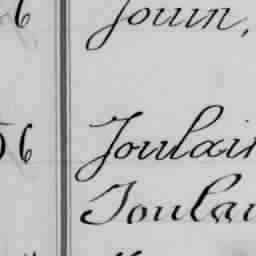 6 Jouin,
56 Joulain
Joulai